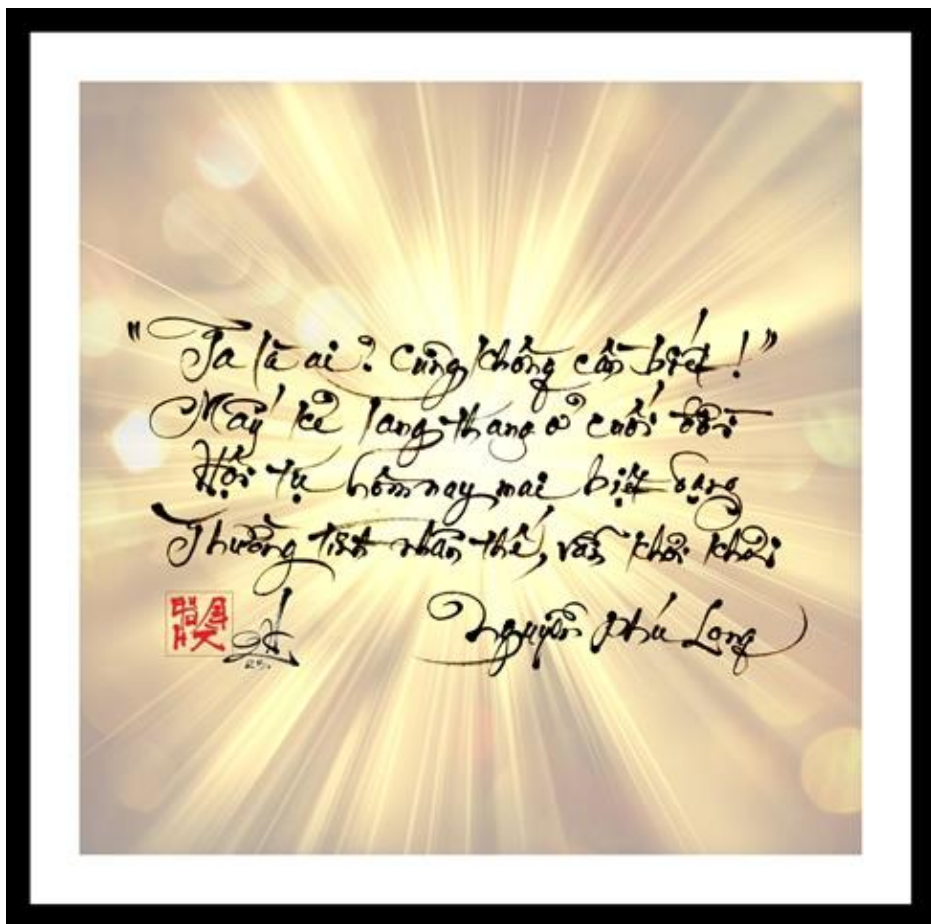 "Ta là ai? Cũng không cần biết!"
Mấy kẻ lang thang ở cuối đời
Hội tụ hôm nay, mai biệt dạng
Thường tình nhân thế, vẫn khơi khơi
Nguyễn Phú Long